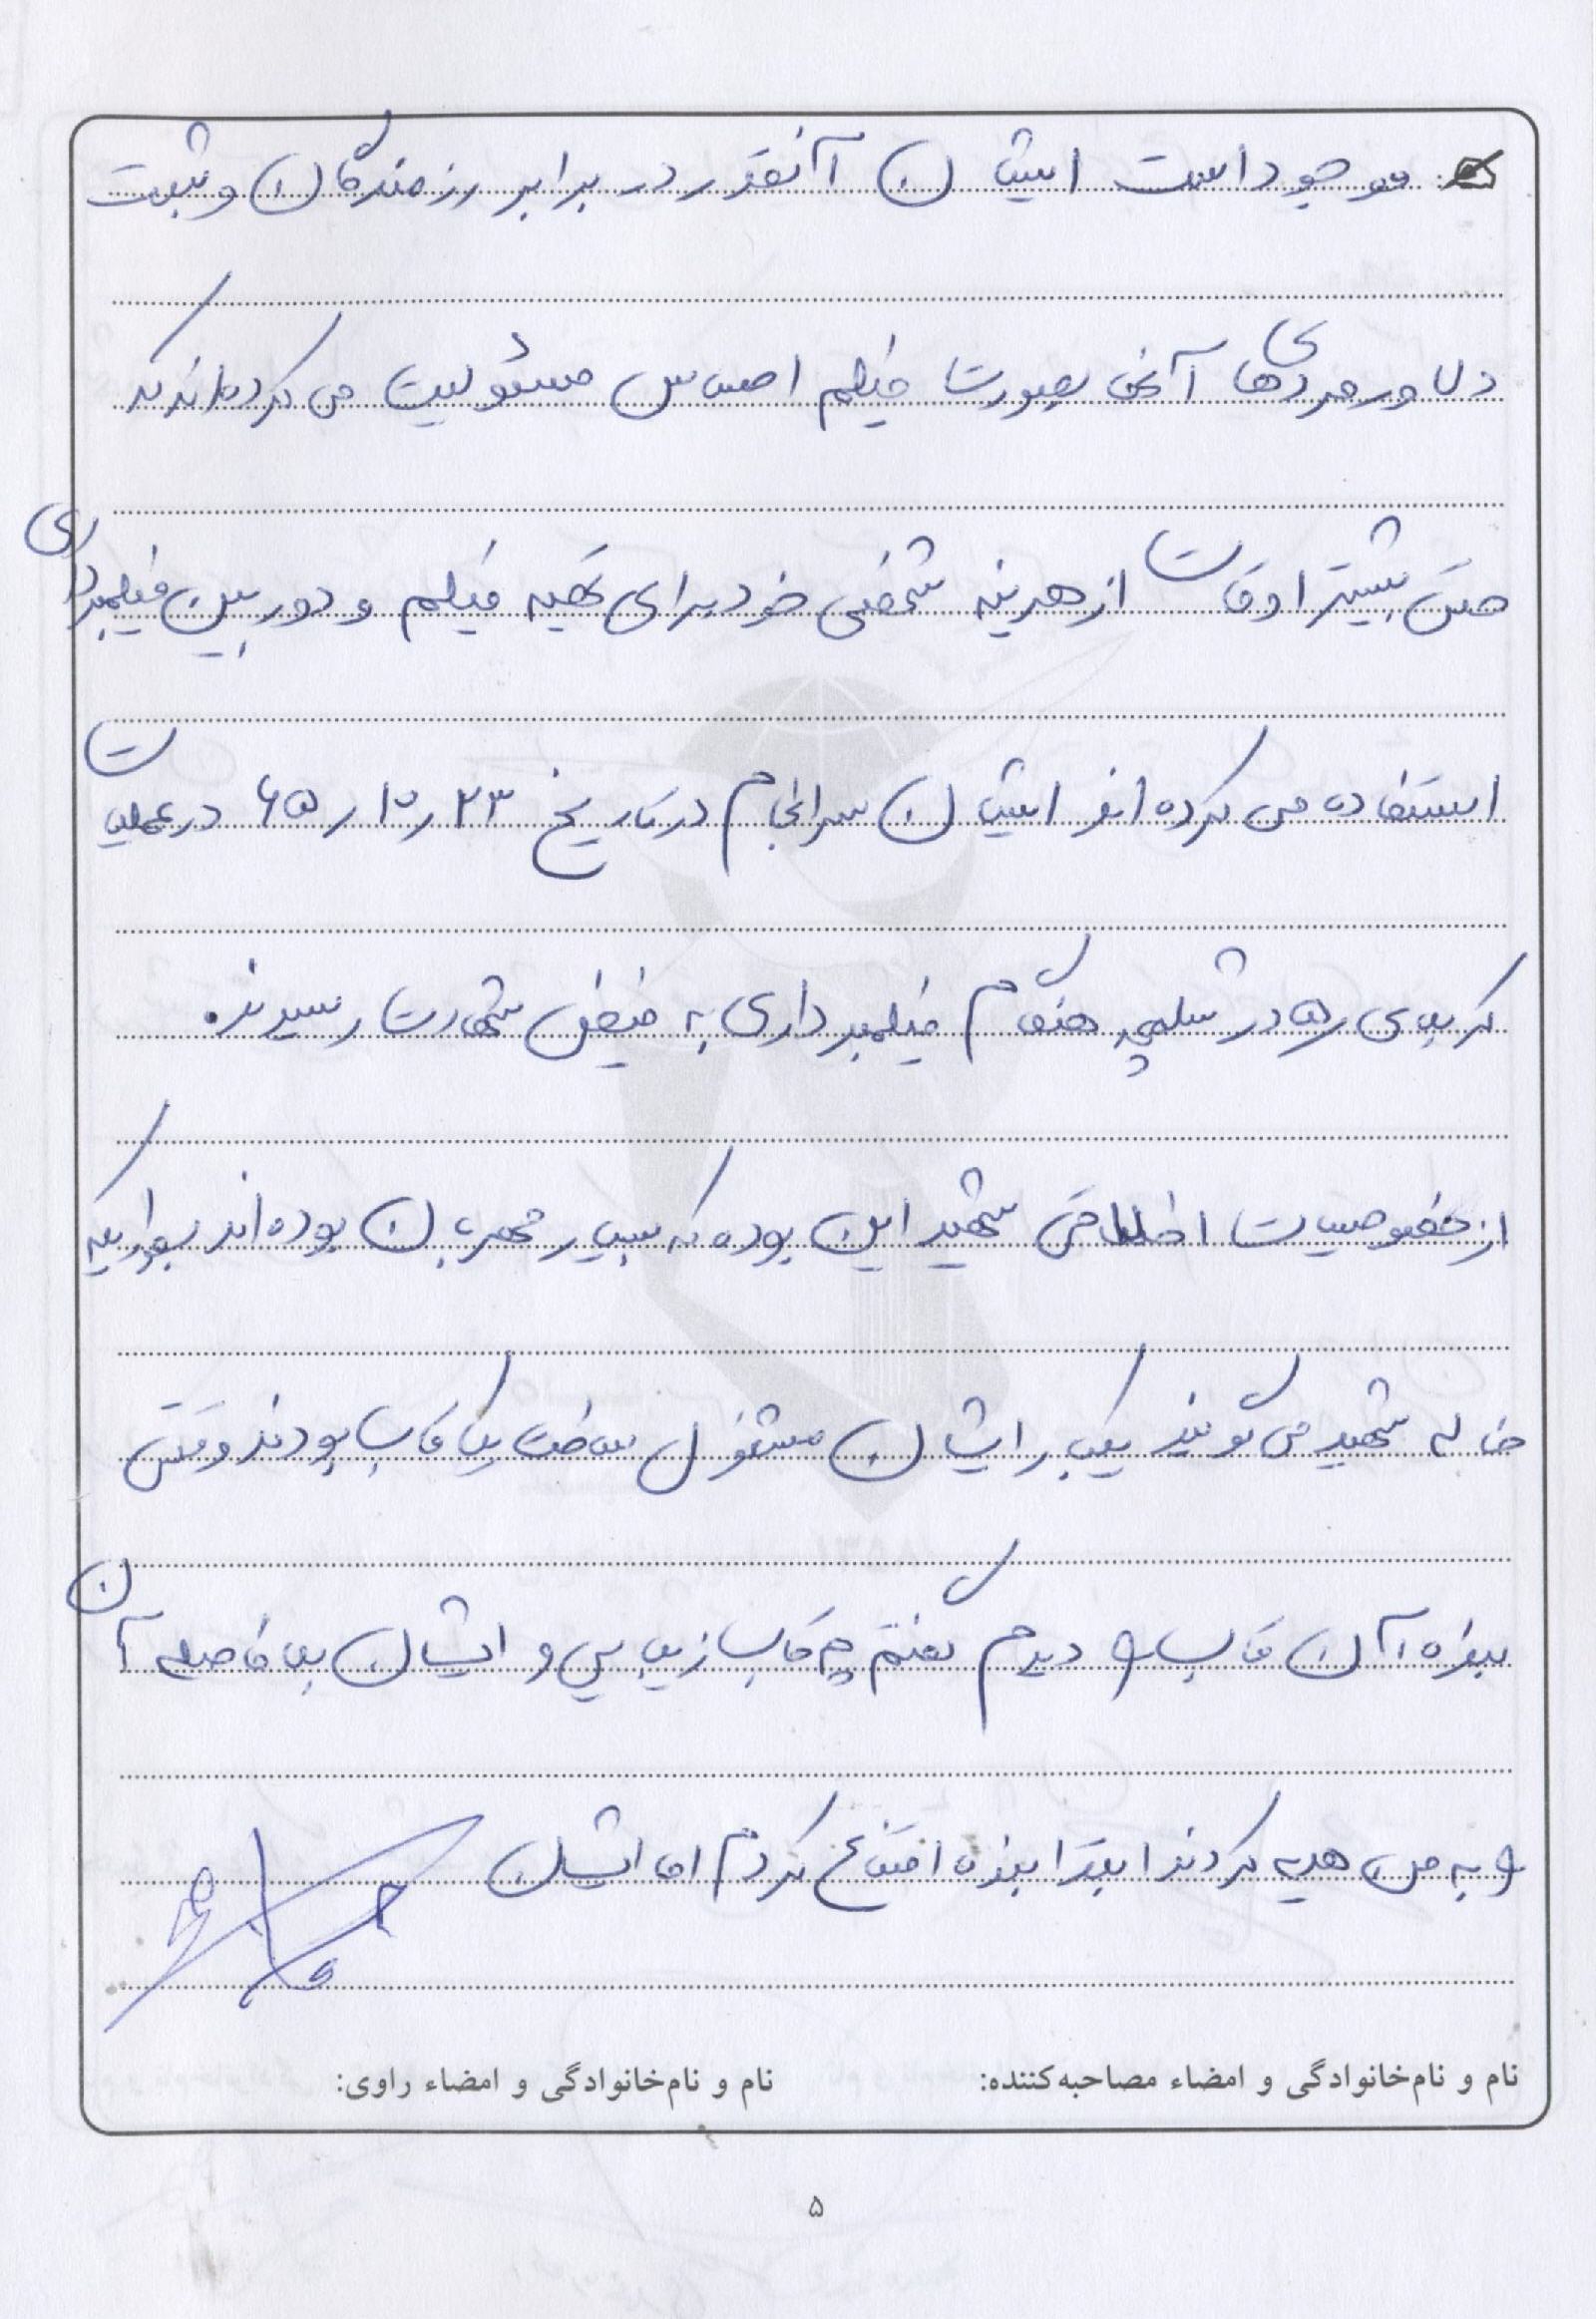 موجود است ایشان آنقدر در برابر رزمندگان و ثبت
دلاورمردی های آنها بصورت فیلم احساس مسئولیت می کرده اند که
حتی بیشتر اوقات از هزینه شخصی خود برای تهیه فیلم و دوربین فیلمبرداری
استفاده می کرده اند ایشان سرانجام در تاریخ ۲۳ ر ۱۰ ر ۶۵ در عملیات
کربلای ۵ در شلمچه هنگام فیلمبرداری به فیض شهادت رسیدند.
از خصوصیات اخلاقی شهید این بوده که بسیار مهربان بوده اند بطوریکه
خاله شهید می گویند یکبار ایشان مشغول ساخت یک قاب بودند وقتی
بنده آن قاب را دیدم گفتم چه قاب زیبایی و ایشان بلافاصله آن
را به من هدیه کردند ابتدا بنده امتناع کردم اما ایشان
نام و نام‌خانوادگی و امضاء مصاحبه‌کننده: نام و نام‌خانوادگی و امضاء راوی:
۵